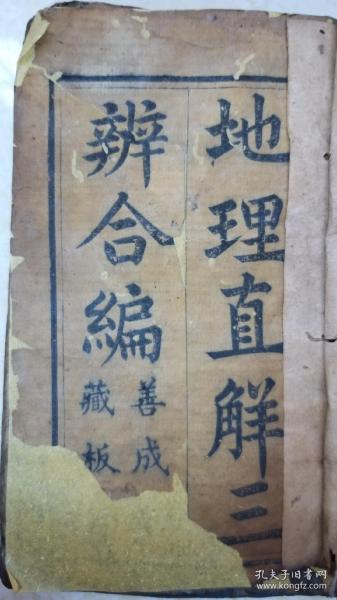 地理直觧三
辨合編
善成
藏板
孔夫子旧书网
www.kongfz.com